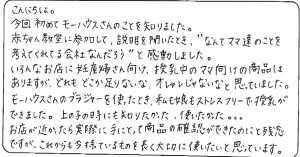 こんにちは。
今回初めてモーハウスさんのことを知りました。
赤ちゃん教室に参加して、説明を聞いたとき、"なんてママ達のことを
考えてくれてる会社なんだろう"と感動しました。
いろんなお店に妊産婦さん向け、授乳中のママ向けの商品は
ありますが、どれもどこか足りないな、オシャレじゃないなと思っていました。
モーハウスさんのブラジャーを使ったとき、私も娘もストレスフリーで授乳が
できました。上の子の時にも知りたかった、使いたかった。。。
お店が近かったら実際に手にとって商品の確認ができたのにと残念
ですが、これからも今持っているものを長く大切に使いたいと思っています。